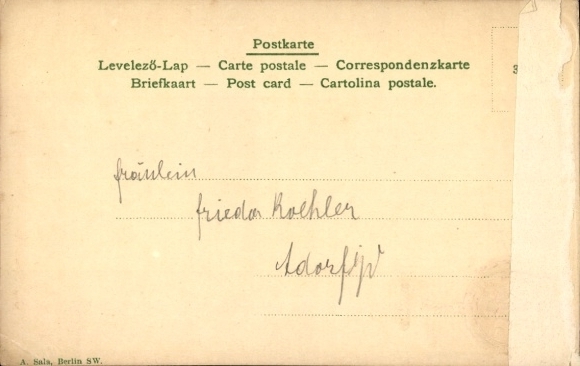 Postkarte
Levelező-Lap — Carte postale — Correspondenzkarte
Briefkaart — Post card — Cartolina postale.
Fräulein
Frieda Koehler
Adorf i/V
A. Sala, Berlin SW.